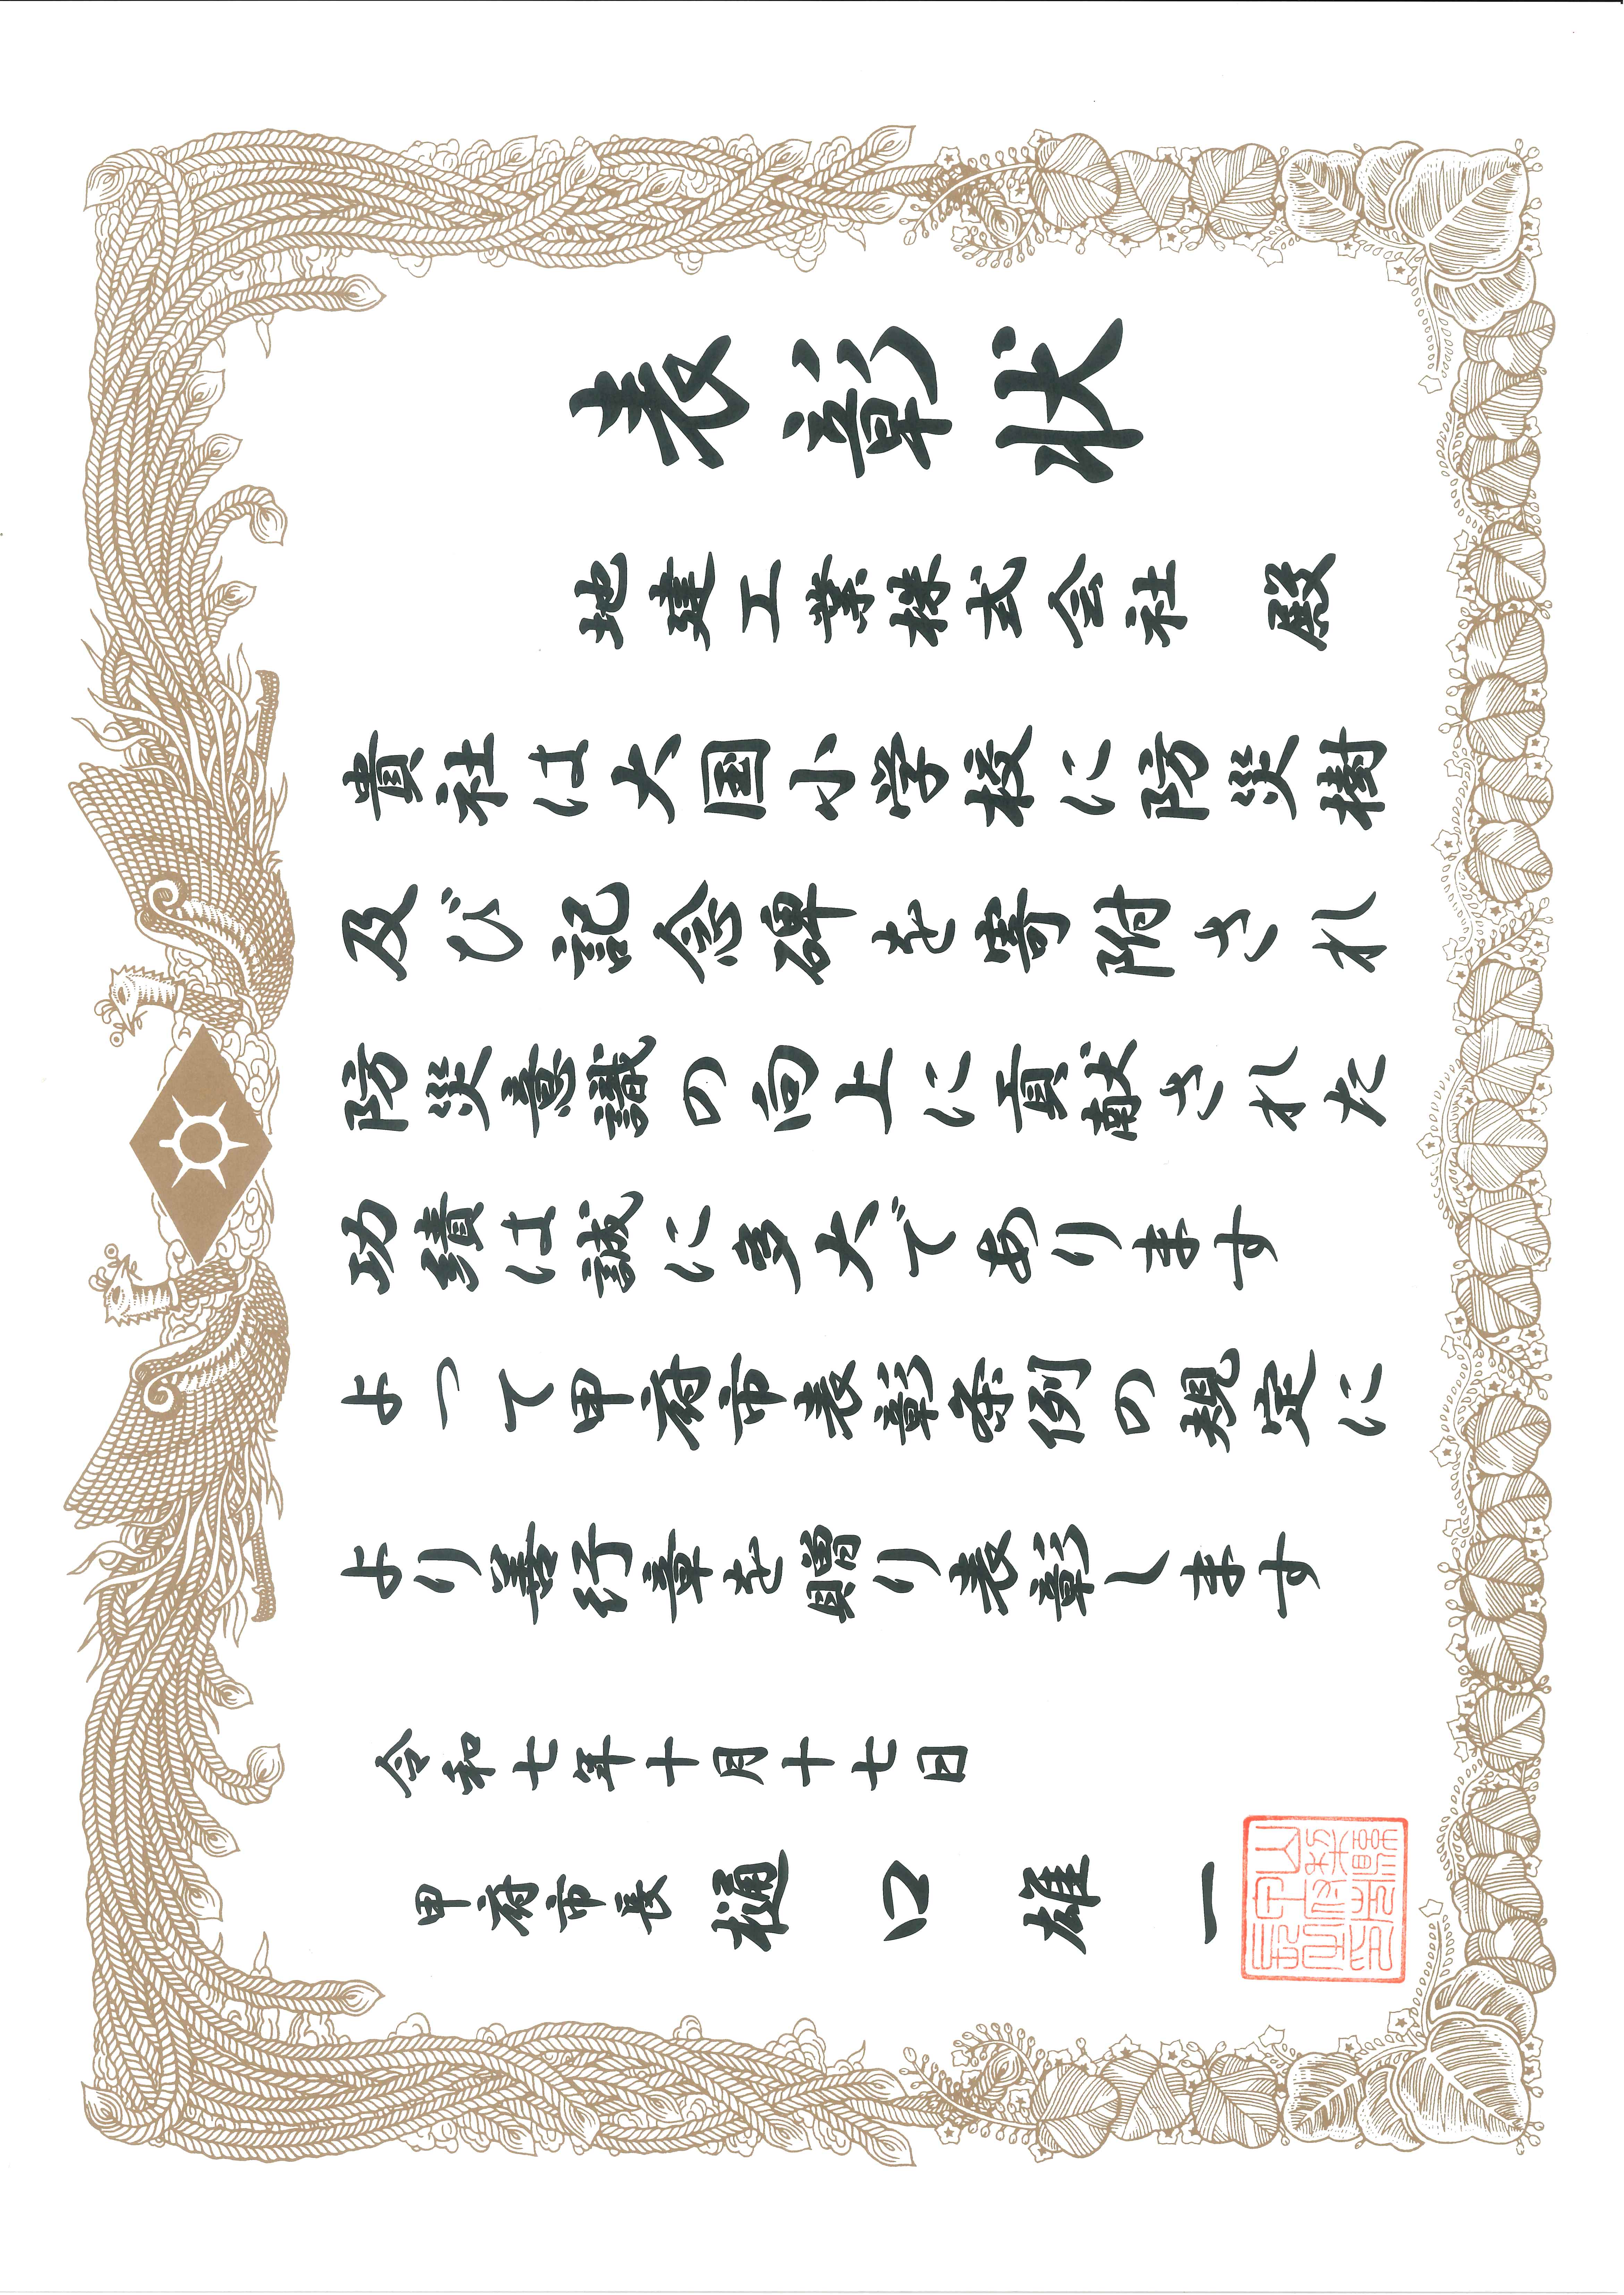 表彰状
地建工業株式会社 殿
貴社は大国小学校に防災樹
及び記念碑を寄附され
防災意識の向上に貢献された
功績は誠に多大であります
よって甲府市表彰条例の規定に
より善行章を贈り表彰します
令和七年十月十七日
甲府市長 樋口雄一